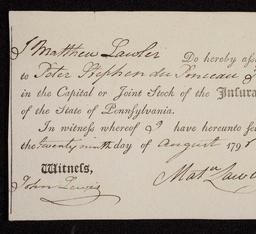 I Matthew Lawler Do hereby
to Peter Stephen du Ponceau
in the Capital or Joint Stock of the Insura
of the State of Pennsylvania.
In witness whereof I have hereunto
the twenty ninth day of August 179
Witness,
John Matw Lawl